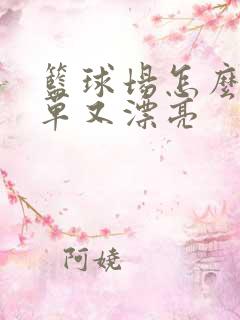 籃球場怎麼
單又漂亮
阿嬈